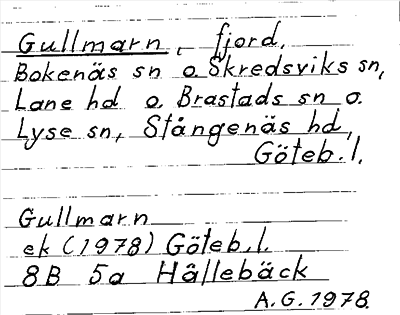 Gullmarn, fjord,
Bokenäs sn o. Skredsviks sn,
Lane hd o. Brastads sn o.
Lyse sn, Stångenäs hd,
Göteb. l.
Gullmarn
ek (1978) Göteb. l.
8B 5a Hållebäck
A.G. 1978.